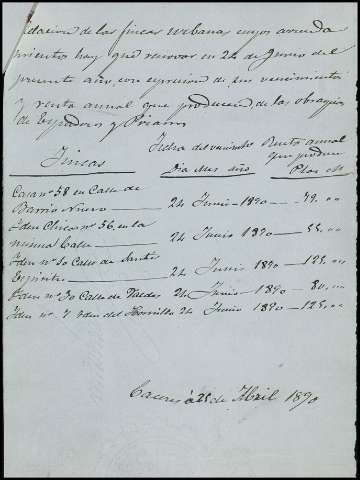 Relacion de las fincas urbanas cuyos arrenda
mientos hay que renovar en 24 de Junio del
presente año, con expresion de su vencimiento
y renta annual que producen de las obras pias
de Espaderos y Pizarro
Fincas
Fecha del vencimto
Dia Mes año
Renta annual
que produce
Casa nº 58 en Calle de
Barrio Nuevo 24 Junio 1890
Yden nº 56, en la
misma Calle 24 Junio 1890 55,00
Yden nº Calle de Santos
24 Junio 1890 125,00
Yden nº 30 Calle de Valdes 24 Junio 1890 80,00
Yden nº 7 Yden del Hornillo 24 Junio 1890 125,00
Caceres á 25 de Abril 1890